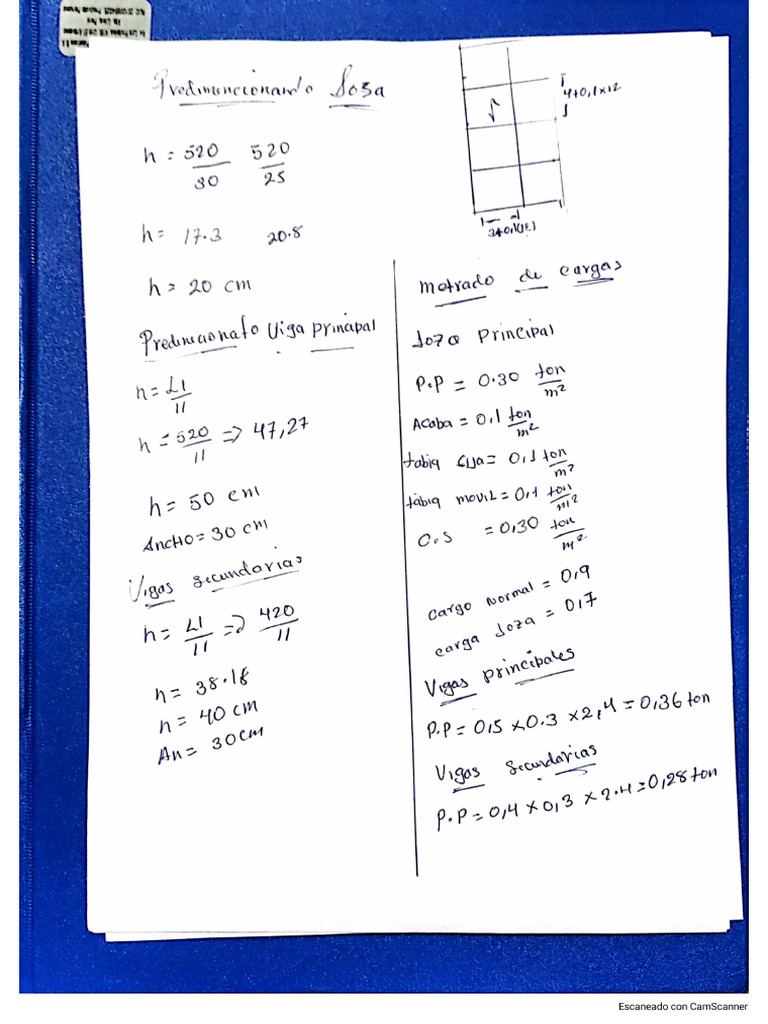 Predimencionando Loza
h = 520/30 520/25
h = 17.3 20.8
h = 20 cm
Predimcionato Viga principal
h = L1/11
h = 520/11 => 47,27
h = 50 cm
ANCHO = 30 cm
Vigas Secundarias
h = L1/11 => 420/11
h = 38.18
h = 40 cm
An = 30 cm
4+0,1x12
metrado de cargas
Loza Principal
P.P = 0.30 ton/m²
Acaba = 0,1 ton/m²
tabiq = 0,1 ton/m²
tabiq movil = 0,1 ton/m²
= 0,30 ton/m²
cargo normal = 0,9
carga Loza = 0,7
Vigas principales
P.P = 0,5 x 0.3 x 2,4 = 0,36 ton
Vigas Secundarias
P.P = 0,4 x 0,3 x 2.4 = 0,28 ton
Escaneado con CamScanner